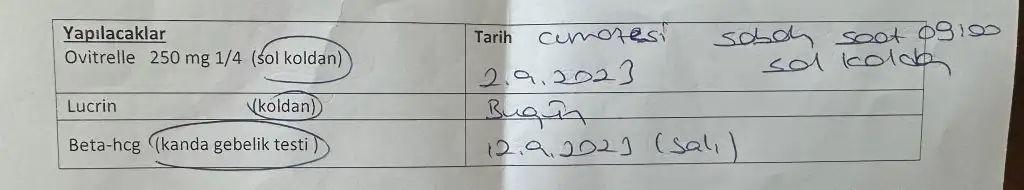 Yapılacaklar
Ovitrelle 250 mg 1/4 (sol koldan)
Tarih cumartesi sabah saat 09:00
sol koldan
2.9.2023
Lucrin (koldan)
Bugün
Beta-hcg (kanda gebelik testi)
12.9.2023 (salı)